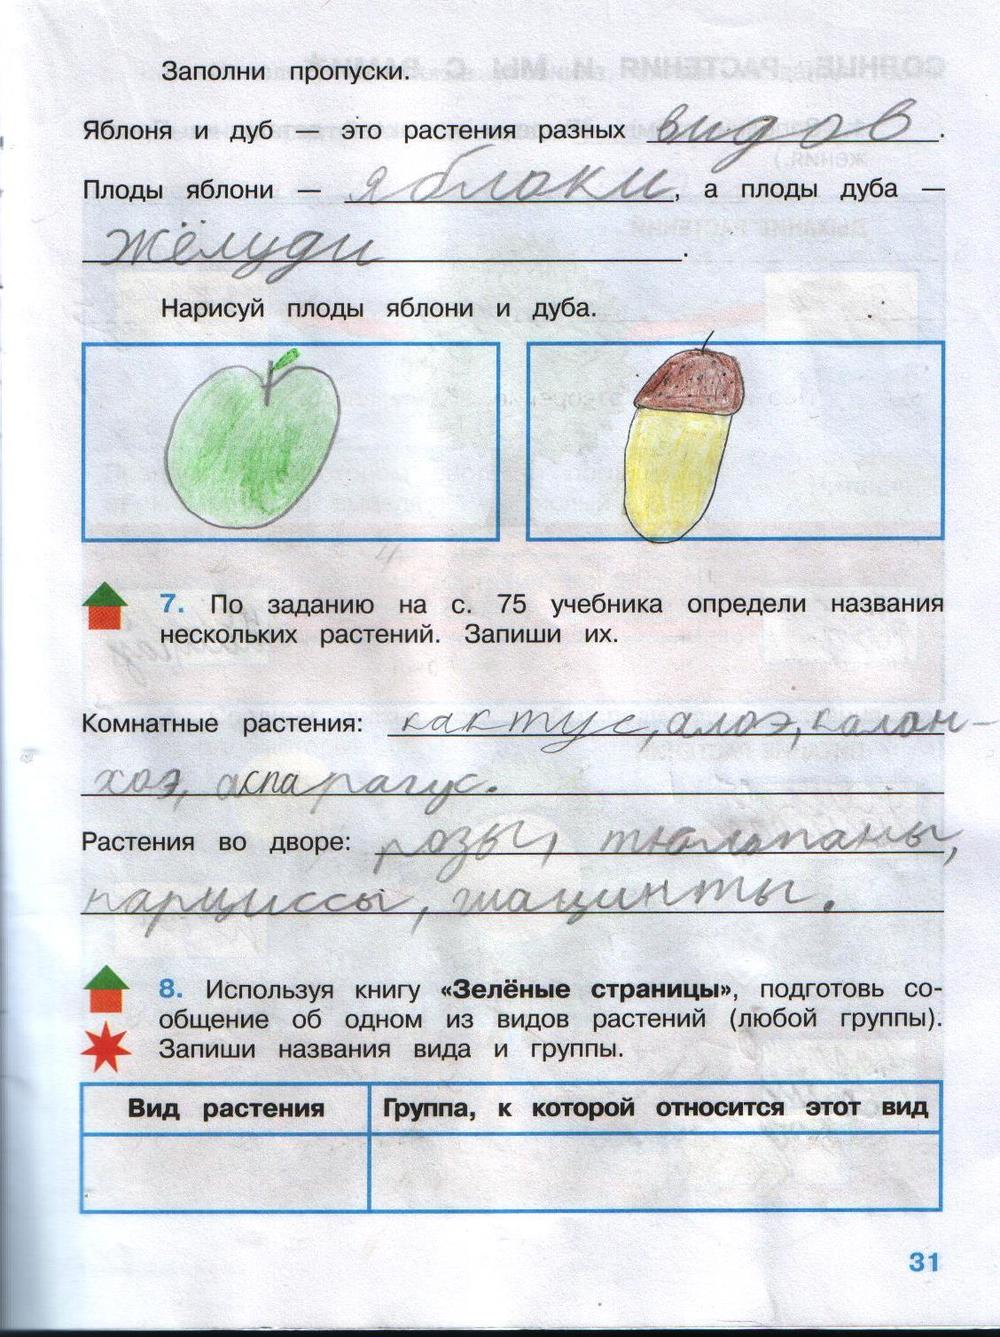 Заполни пропуски.
Яблоня и дуб — это растения разных видов.
Плоды яблони — яблоки, а плоды дуба —
жёлуди.
Нарисуй плоды яблони и дуба.
7. По заданию на с. 75 учебника определи названия
нескольких растений. Запиши их.
Комнатные растения: кактус, алоэ, калан-
хоэ, аспарагус.
Растения во дворе: розы, тюльпаны,
нарциссы, гиацинты.
8. Используя книгу «Зелёные страницы», подготовь со-
общение об одном из видов растений (любой группы).
Запиши названия вида и группы.
Вид растения Группа, к которой относится этот вид
31